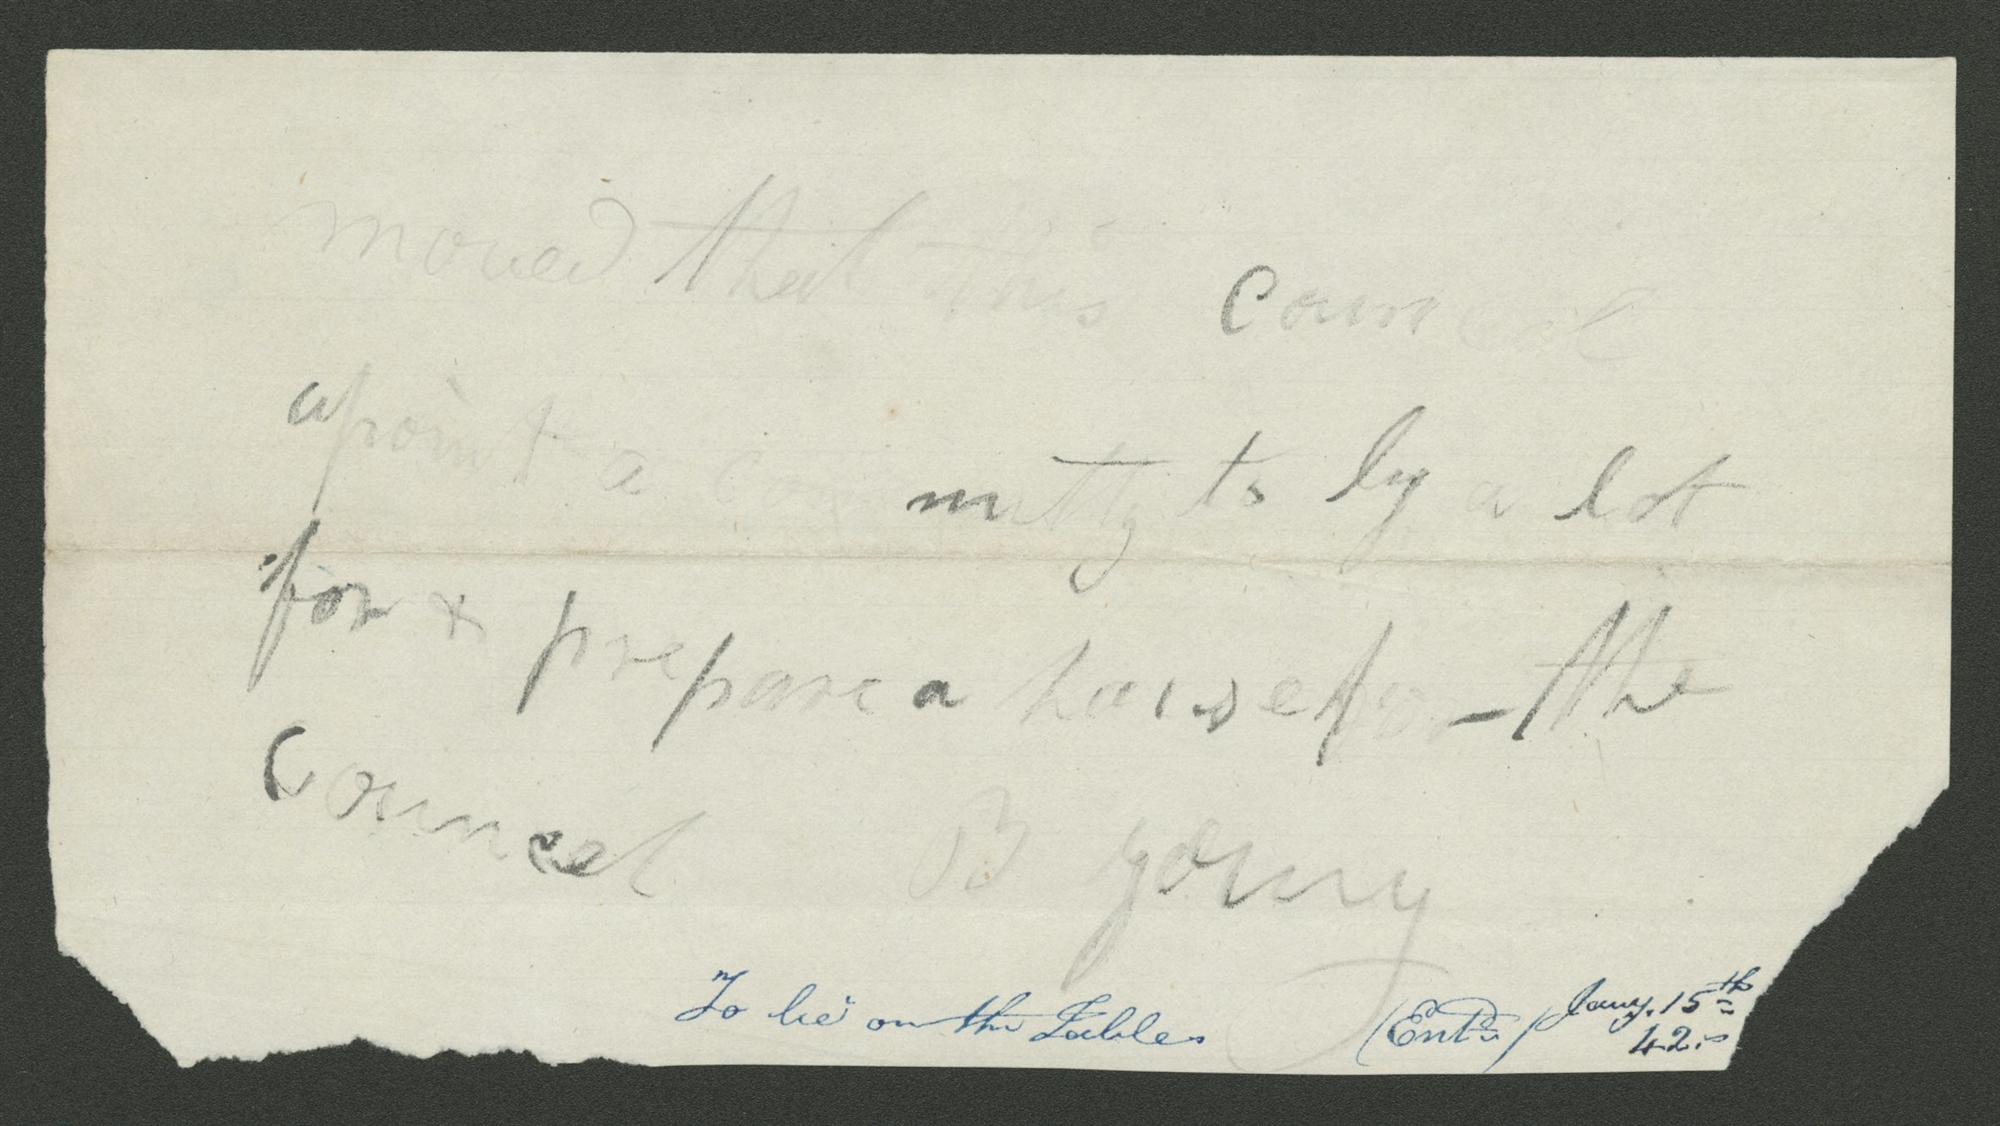 moved that this Councel
apoint a committy to by a lot
for & prepare a house for the
Councel B young
To lie on the Tables (Entd.) Jany. 15th
42.